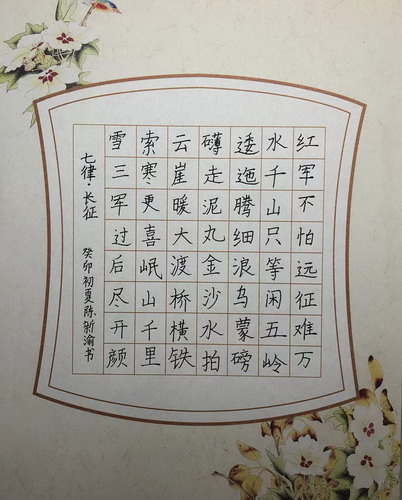 红军不怕远征难万
水千山只等闲五岭
逶迤腾细浪乌蒙磅
礴走泥丸金沙水拍
云崖暖大渡桥横铁
索寒更喜岷山千里
雪三军过后尽开颜
七律·长征 癸卯初夏陈新渝书